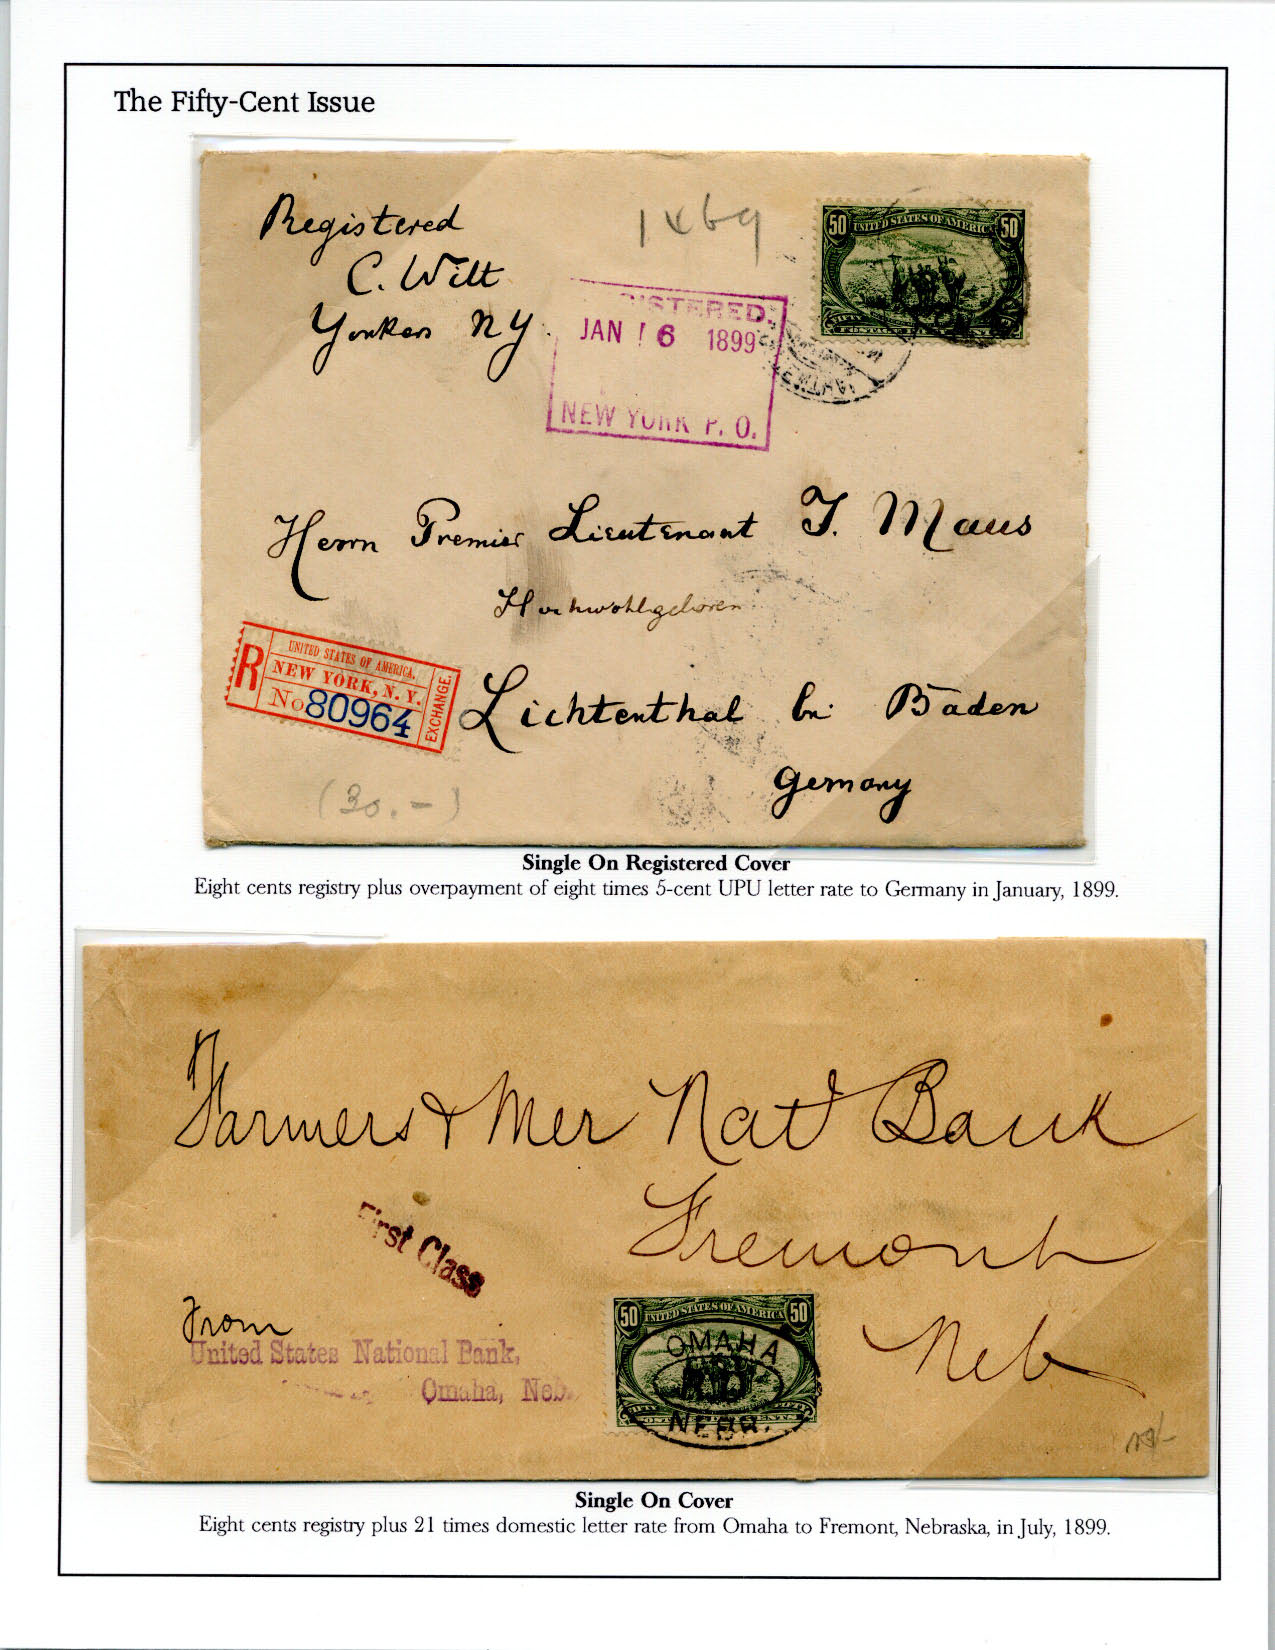 The Fifty-Cent Issue
Registered
C. Wilt
Yonkers NY.
1469
50 UNITED STATES OF AMERICA 50
FIFTY POSTAGE CENTS
ISTERED.
JAN 16 1899
NEW YORK P. O.
Herrn Premier Lieutenant T. Maus
Hochwohlgeboren
R
UNITED STATES OF AMERICA.
NEW YORK, N. Y.
No 80964
EXCHANGE.
Lichtenthal bei Baden
Germany
(30.-)
Single On Registered Cover
Eight cents registry plus overpayment of eight times 5-cent UPU letter rate to Germany in January, 1899.
Farmers & Mer Nat Bank
Fremont
Neb
First Class
From
United States National Bank,
Omaha, Neb.
50 UNITED STATES OF AMERICA 50
OMAHA
NEBR.
Single On Cover
Eight cents registry plus 21 times domestic letter rate from Omaha to Fremont, Nebraska, in July, 1899.